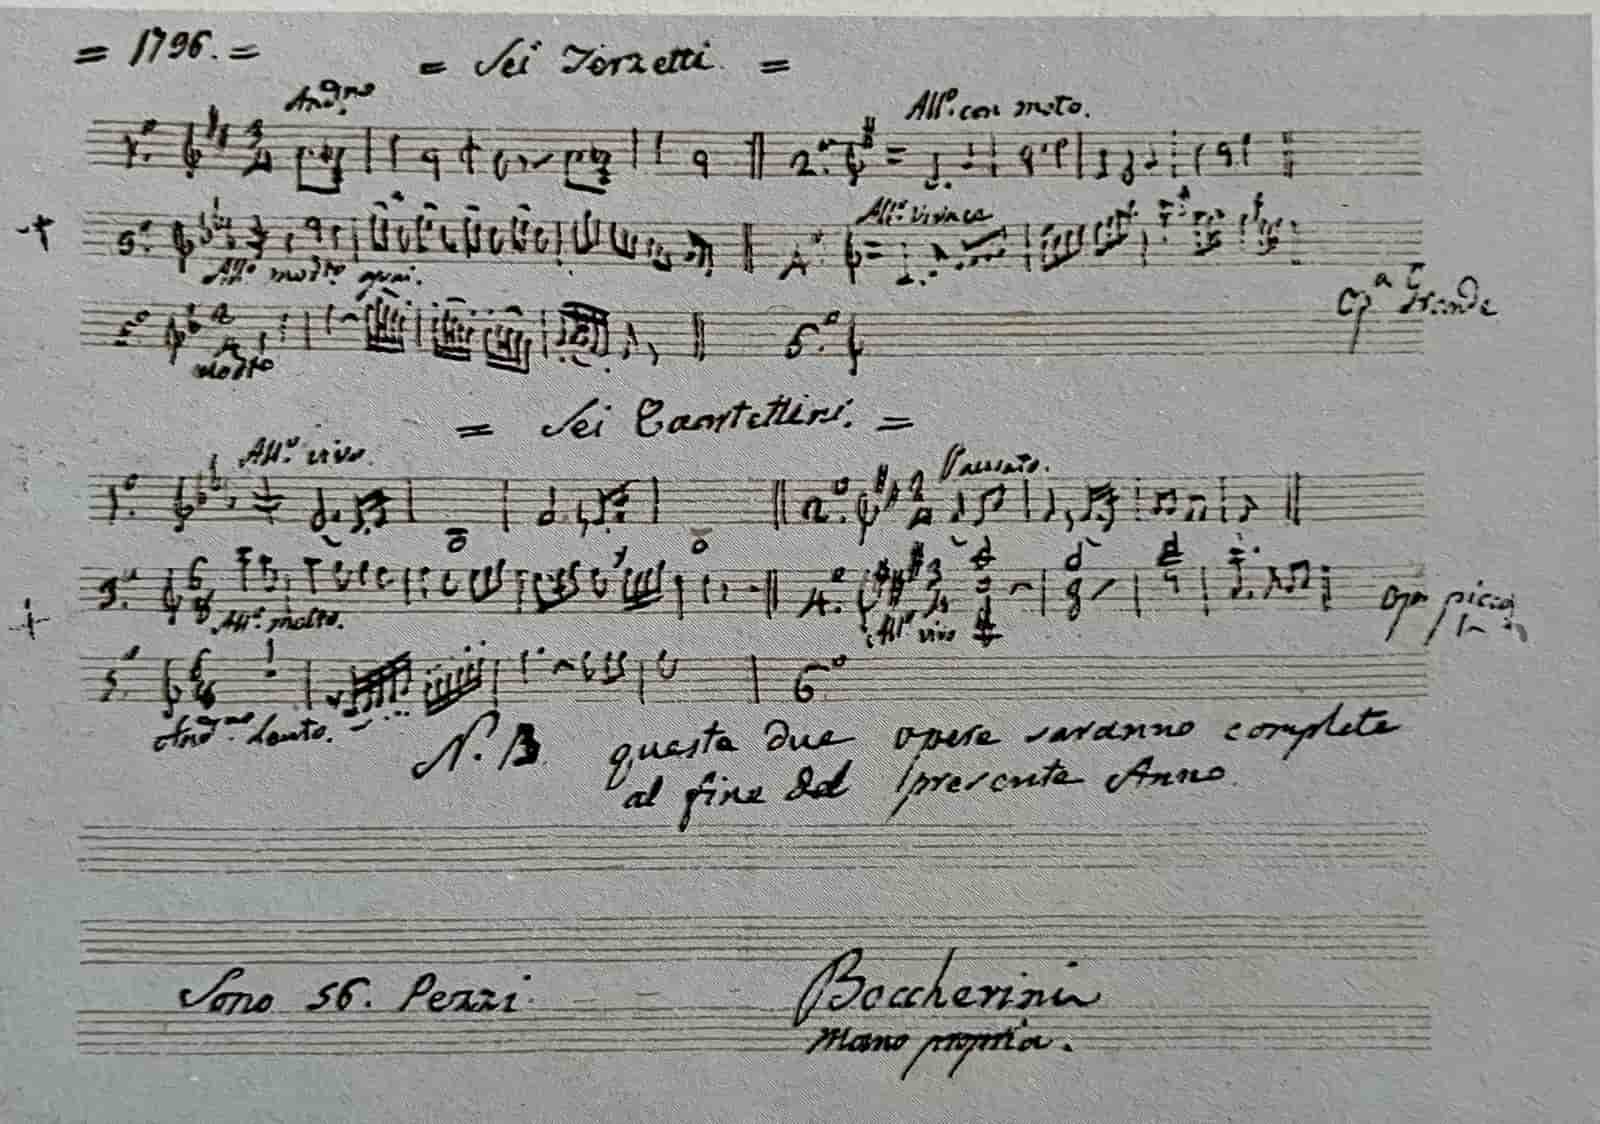 = 1796. =
= Sei Terzetti. =
And.no
All.o con moto.
1.o
2.o
All.o vivace
3.o
4.o
All.o modto
Op.a Grande
5.o
6.o
Modto
= Sei Quartettini. =
All.o vivo.
1.o
2.o
3.o
4.o
All.o molto.
All.o vivo
Op.a picco
5.
6.o
And.no lento.
N. B. queste due opere saranno complete
al fine del presente Anno.
Sono 56. Pezzi.
Boccherini
mano propria.